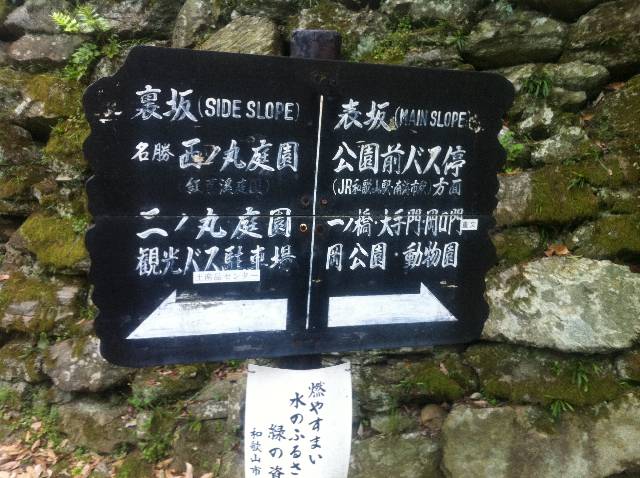 裏坂(SIDE SLOPE)
名勝 西ノ丸庭園
(紅葉渓庭園)
二ノ丸庭園
観光バス駐車場
土産品センター
表坂(MAIN SLOPE)
公園前バス停
(JR和歌山駅・南海市駅)方面
一ノ橋・大手門・岡口門
岡公園・動物園
燃やすまい
水のふるさ
緑の資
和歌山市